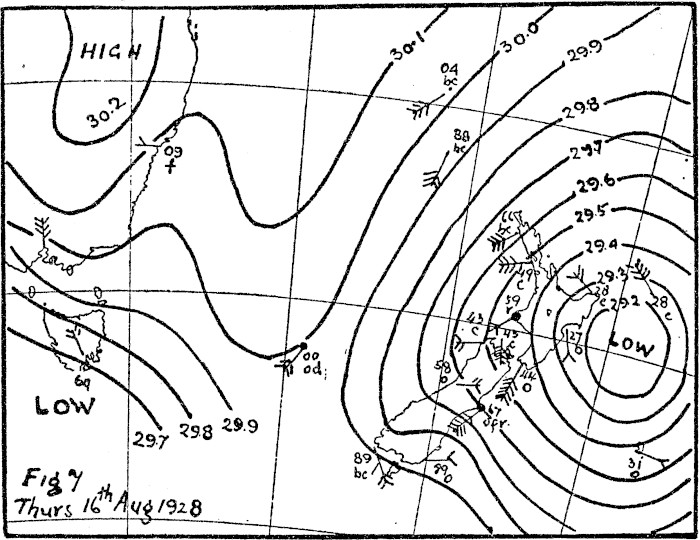 HIGH
30.2
30.1
30.0
29.9
04
bc
29.8
88
bc
29.7
09
f
29.6
29.5
66
bc
29.4
49
c
29.3
29.2
28
c
28
c
39
r
43
c
45
c
27
o
LOW
00
od
58
o
44
o
69
LOW
29.7 29.8 29.9
67
89
bc
89
o
31
o
Fig 7
Thurs 16th Aug 1928